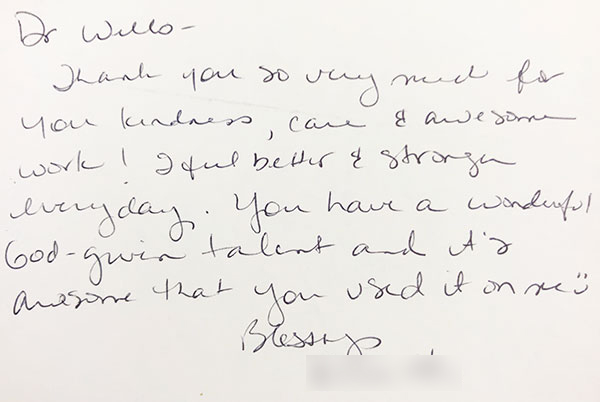 Dr Wello-
Thank you so very much for
your kindness, care & awesome
work! I feel better & stronger
everyday. You have a wonderful
God-given talent and it's
awesome that you used it on me
Blessings